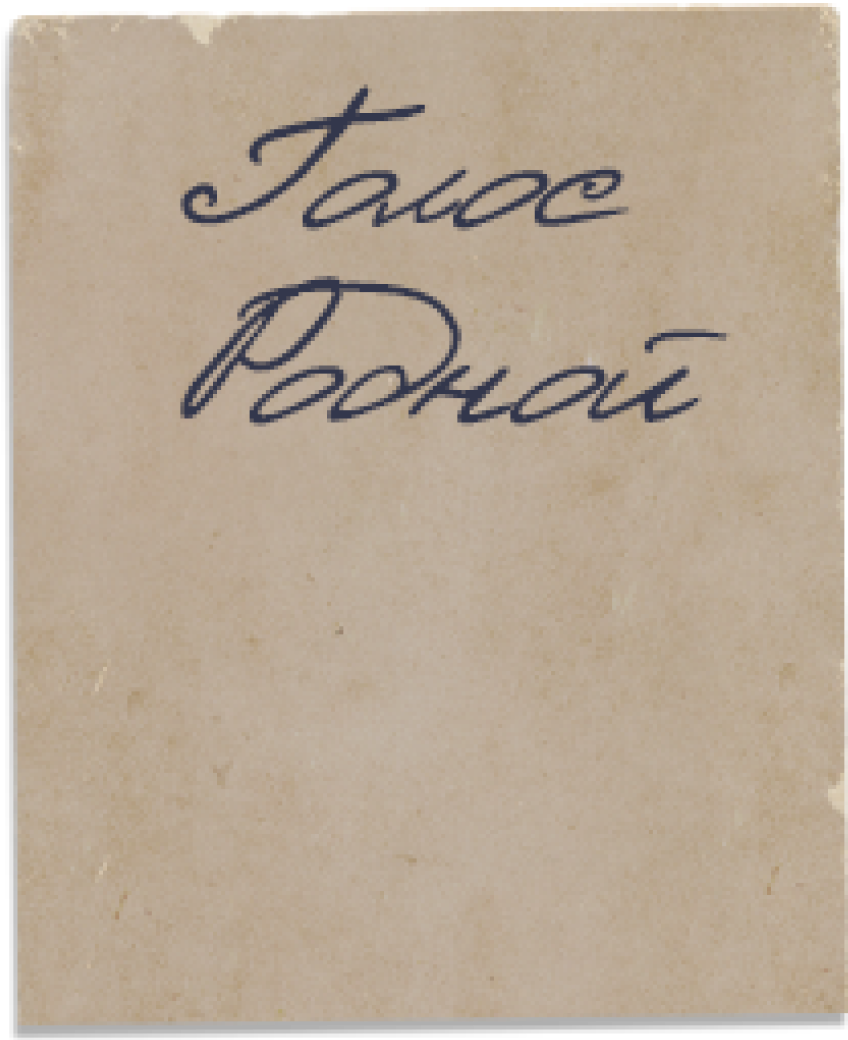 Голос
Родной